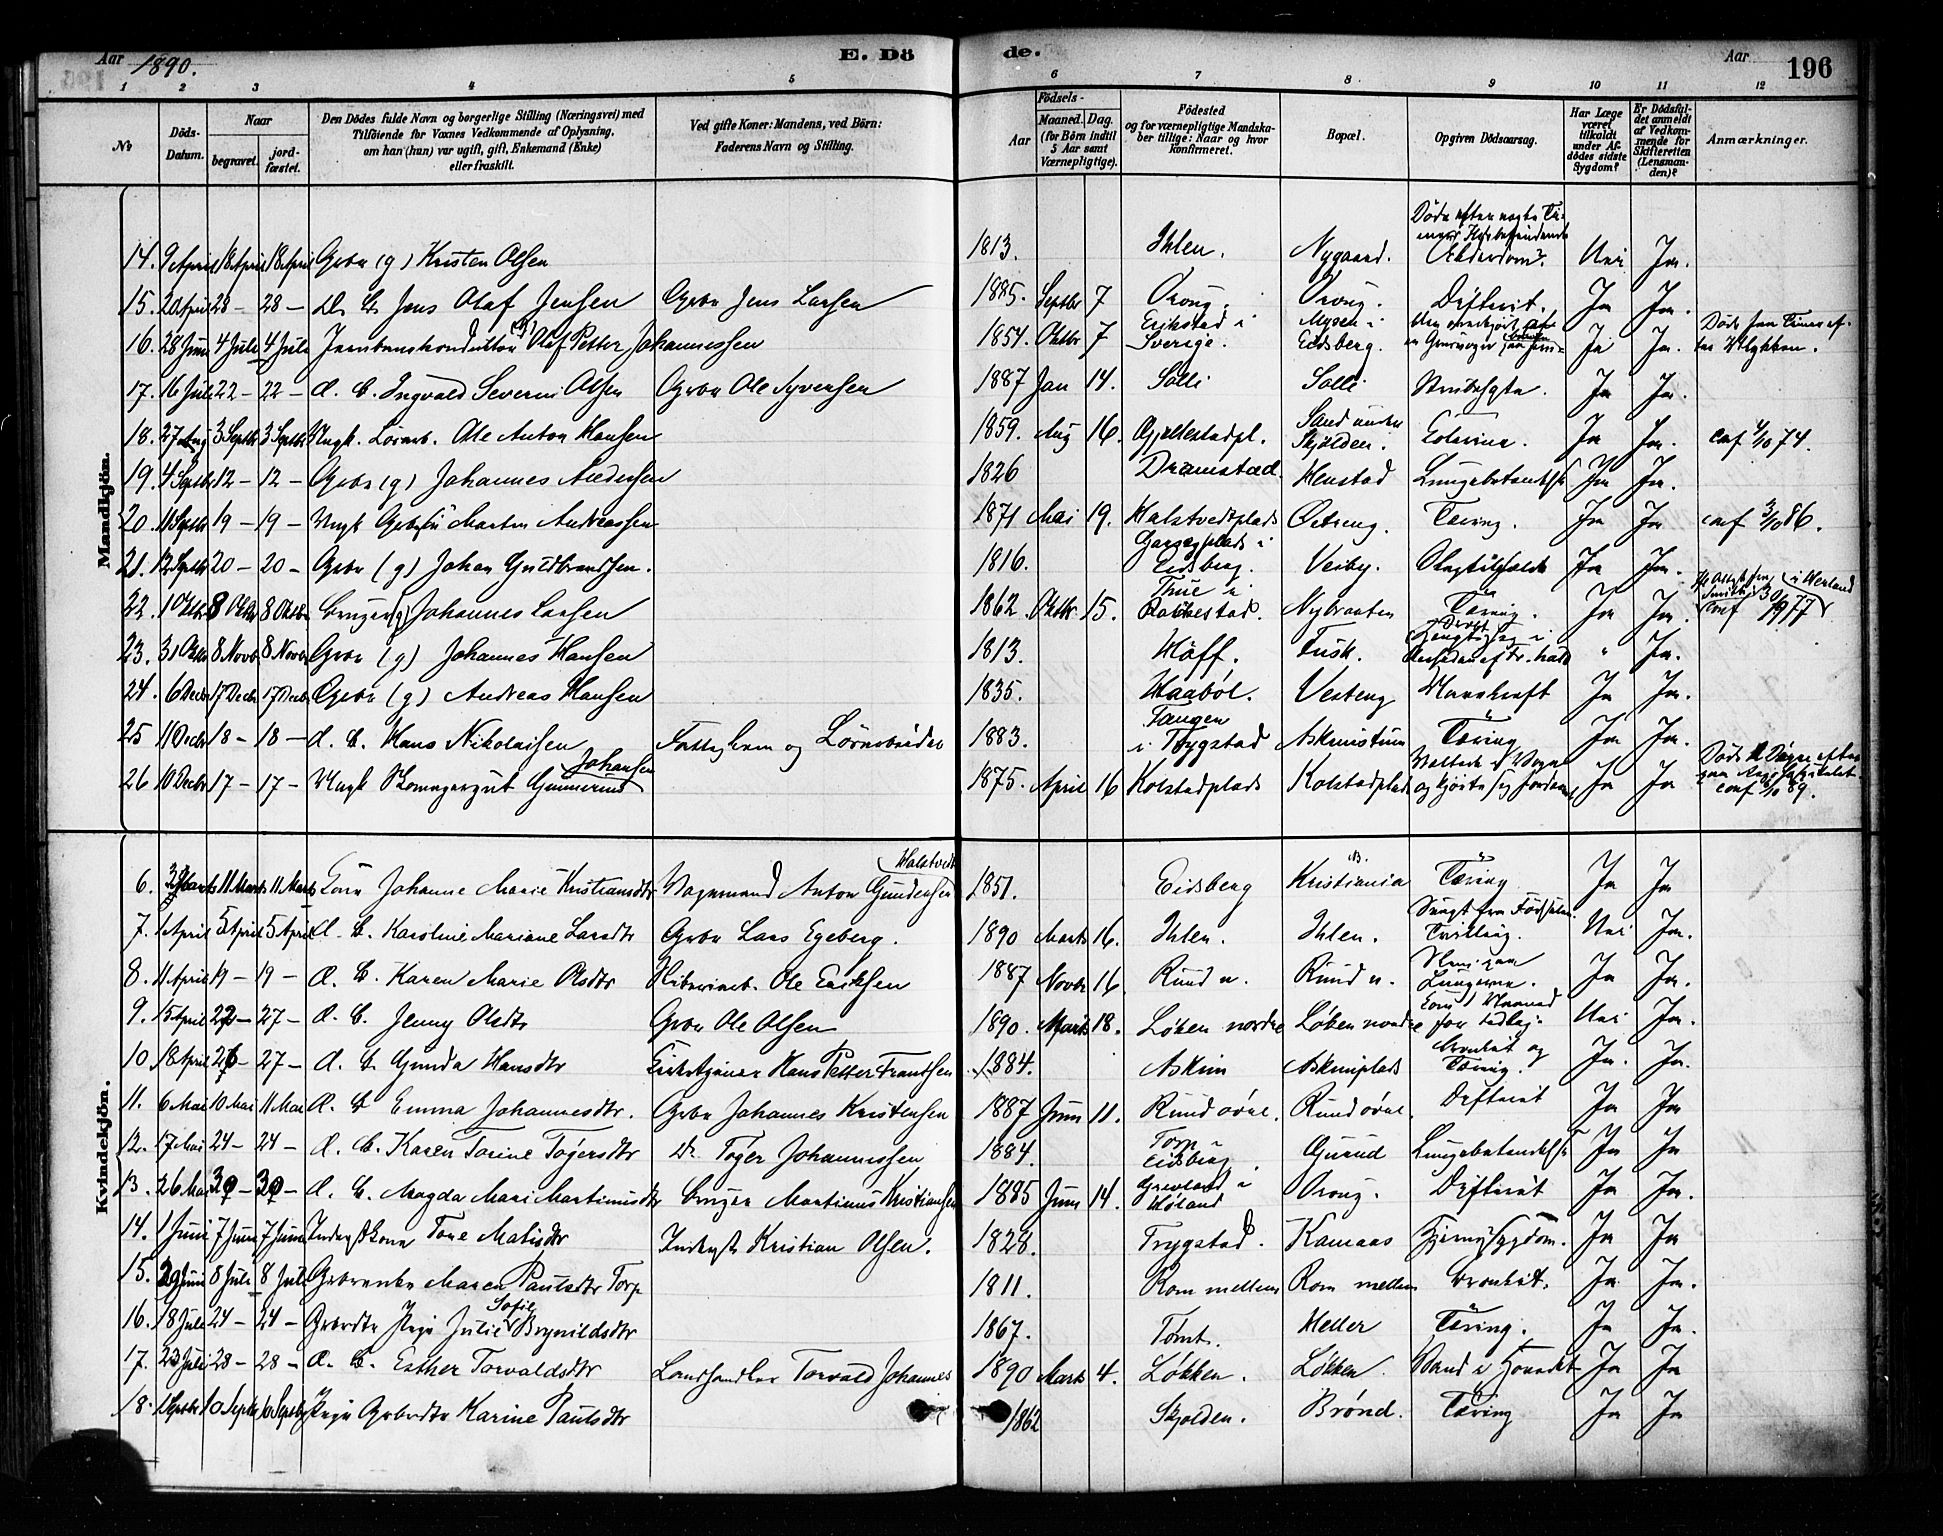 Aar 1890. E. Dö de. Aar 196
1 2 3 4 5 6 7 8 9 10 11 12
No Döds-Datum. Naar begravet. jordfæstet. Den Dödes fulde Navn og borgerlige Stilling (Næringsvei) med Tilföiende for Voxnes Vedkommende af Oplysning, om han (hun) var ugift, gift, Enkemand (Enke) eller fraskilt. Ved gifte Koner: Mandens, ved Börn: Faderens Navn og Stilling. Födsels- Aar Maaned. Dag. (for Börn indtil 5 Aar samt Værnepligtige). Födested og for værnepligtige Mandskaber tillige: Naar og hvor konfirmeret. Bopæl. Opgiven Dödsaarsag. Har Læge været tilkaldt under Afdödes sidste Sygdom? Er Dödsfaldet anmeldt af Vedkommende for Skifteretten (Lensmanden)? Anmærkninger.
Mandkjön.
14. 9 April 18 April 18 April Gbr (g) Kristen Olsen 1813. Ihlen. Nygaard. Alderdom. Nei Ja.
15. 20 April 28 - 28 - D. B. Jens Olaf Jensen Gbr Jens Larsen 1885. Septbr 7 Vrong. Vrong. Difterit. Ja Ja.
16. 28 Juni 4 Juli 4 Juli Jernbanekonduktör (g) Olaf Petter Johannessen 1854. Oktbr 7 Erikstad i Sverige. Mysen i Eidsberg. Ja Ja. Døde fem Timer efter Ulykken.
17. 16 Juli 22 - 22 - d. B. Ingvald Severin Olsen Gbr Ole Syversen 1887 Jan 14. Solli Solli Strubesyge. Ja Ja.
18. 27 Aug 3 Septbr 3 Septbr Ungk. Lösarb. Ole Anton Hansen 1859. Aug 16. Gjellestadpl. Sand under Skjolden. Ja Ja. conf 4/10 74.
19. 4 Septbr 12 - 12 - Gbr (g) Johannes Andersen 1826 Dramstad Henstad Lungebetændelse Ja Ja.
20. 11 Septbr 19 - 19 - Ungk Gbrsön Martin Andreassen 1871 Mai 19. Halstvedtplads Ostreng. Tæring. Ja Ja conf 3/10 86.
21. 12 Septbr 20 - 20 - Gbr (g) Johan Guldbrandsen. 1816. Eidsberg. Veiby. Slagtilfælde Ja Ja.
22. 1 Oktbr 8 Oktbr 8 Oktbr Bruger (g) Johannes Larsen 1862 Oktbr 15. Thue i Rakkestad. Nybraaten Tæring. Ja Ja. conf 30/9 77
23. 31 Oktbr 8 Novbr 8 Novbr Gbr (g) Johannes Hansen 1813. Höff. Fusk. " Ja.
24. 6 Decbr 17 Decbr 17 Decbr Gbr (g) Andreas Hansen 1835. Haaböl. Vesteng Mavekræft Ja Ja.
25 11 Decbr 18 - 18 - d. B. Hans Nikolaisen Fattiglem og Lösarbeider 1883. Tangen i Trygstad Askimstuen Tæring Ja Ja.
26 10 Decbr 17 - 17 - Ungk Skomagergut Gunnerius Johansen 1875. April 16 Kolstadplads Kolstadplads Væltede i Vogn Ja Ja conf 89.
Kvindekjön.
6. 3 Marts 11 Marts 11 Marts Kone Johanne Marie Kristiansdtr Vognmand Anton Gundersen Halstvedt 1851. Eidsberg Kristiania Tæring Ja Ja
7. 1 April 5 April 5 April d. B. Karoline Mariane Larsdtr Gbr Lars Egeberg. 1890 Marts 16. Ihlen. Ihlen. Svagt fra Fødselen. Tvilling. Nei Ja.
8. 11 April 19 - 19 - d. B. Karen Marie Olsdtr Ole Eriksen 1887 Novbr 16. Rund n. Rund n. Lungerne. Ja Ja.
9. 15 April 27 - 27 - d. B. Jenny Olsdtr Gbr Ole Olsen 1890. Marts 18. Løken nordre Løken nordre for tidlig. Nei Ja.
10 18 April 26 - 27 - d. B. Gunda Hansdtr Kirketjener Hans Petter Frantsen 1884. Askim Askimplads Bronkit og Tæring. Ja. Ja.
11. 6 Mai 10 Mai 11 Mai d. B Emma Johannesdtr. Gbr Johannes Kristensen 1887 Juni 11. Rund øvre. Rund øvre. Difterit Ja Ja
12. 17 Mai 24 - 24 - d. B. Karen Torine Tøgersdtr Do Tøger Johannessen 1884. Torp i Eidsberg. Gurud Lungebetændelse Ja Ja
13. 26 Mai 30 - 30 - d. B. Magda Mari Martinusdtr Bruger Martinus Kristiansen 1885 Juni 14. Høland Vrong. Difterit Ja Ja.
14. 1 Juni 7 Juni 7 Juni Inderstkone Tone Matisdtr Inderst Kristian Olsen. 1828. Trygstad. Kamaas Hjernesygdom. Ja Ja
15. 29 Juni 8 Juli 8 Juli Gbrenke Maren Paulsdtr Torp 1811. Rom mellem Rom mellem Bronkit. Ja Ja.
16. 18 Juli 24 - 24 - Gbrdtr Pige Julie Sofie Brynildsdtr 1867. Tomt. Heller Tæring. Ja Ja.
17. 23 Juli 28 - 28 - d. B. Esther Torvaldsdtr Landhandler Torvald Johannes 1890 Marts 4. Løkken. Løkken. Vand i Hovedet Ja Ja
18. 1 Septbr 10 Septbr 10 Septbr Pige Gbrdtr Karine Paulsdtr 1862 Skjolden. Brønd. Tæring Ja Ja